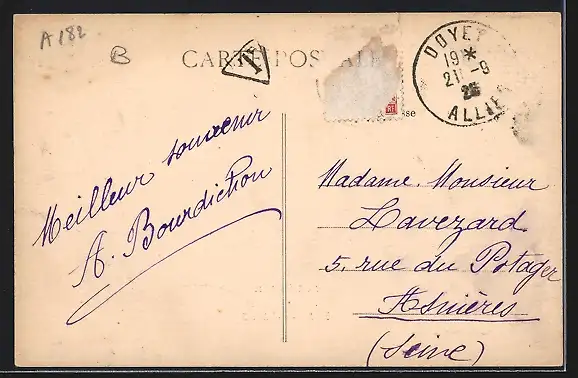 A 182
B
CARTE POSTALE
T
DOYET
19 *
21 -9
25
ALLIER
Meilleur souvenir
A. Bourdichon
Madame, Monsieur
Lavezard
5, rue du Potager
Asnières
(Seine)